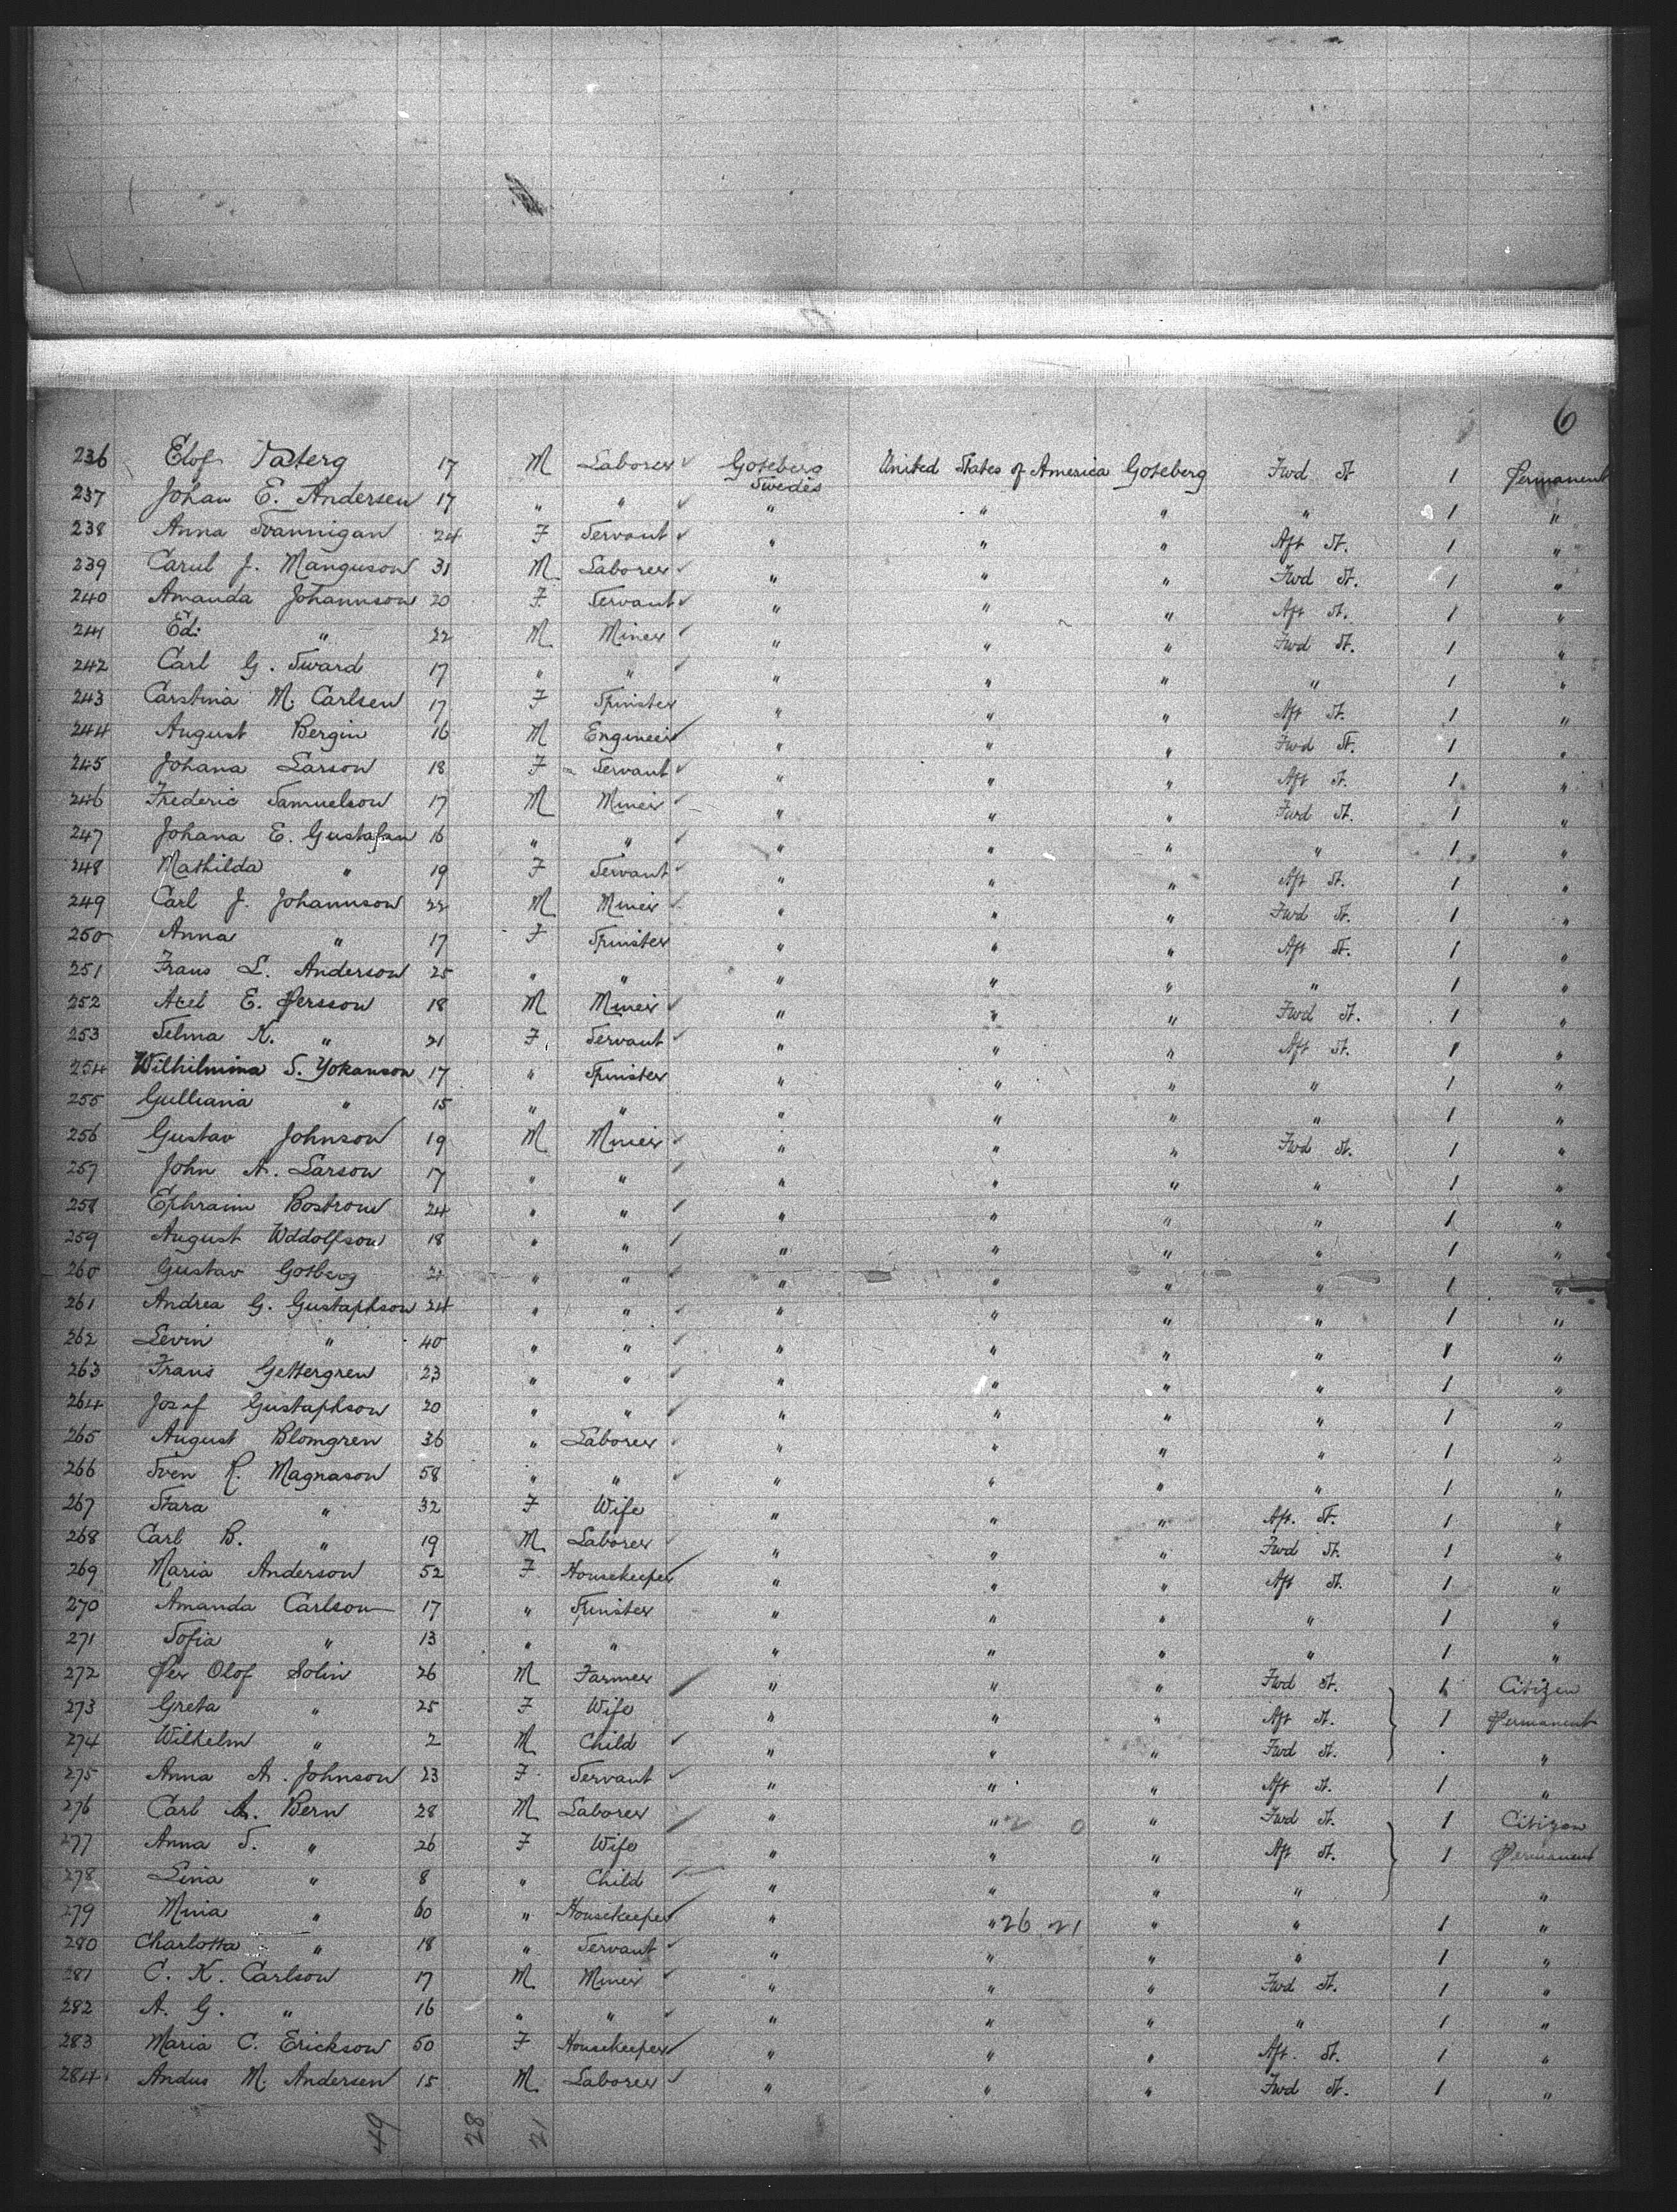 6
236 Elof 17 M Laborer Goteberg Swedes United States of America Goteberg Fwd St 1 Permanent
237 Johan E. Andersen 17 " " " " " " 1 "
238 Anna Svannigan 24 F Servant " " " Aft St. 1 "
239 Carul J. Manguson 31 M Laborer " " " Fwd St. 1 "
240 Amanda Johannson 20 F Servant " " " Aft St. 1 "
241 Ed. " 22 M Miner " " " Fwd St. 1 "
242 Carl G. Sward 17 " " " " " " 1 "
243 Carstina M. Carlsen 17 F Spinster " " " Aft St. 1 "
244 August Bergin 16 M Engineer " " " Fwd St. 1 "
245 Johana Larson 18 F Servant " " " Aft St. 1 "
246 Frederic Samuelson 17 M Miner " " " Fwd St. 1 "
247 Johana E. Gustafsan 16 " " " " " " 1 "
248 Mathilda " 19 F Servant " " " Aft St. 1 "
249 Carl J. Johannson 22 M Miner " " " Fwd St. 1 "
250 Anna " 17 F Spinster " " " Aft St. 1 "
251 Frans L. Anderson 25 " " " " " " 1 "
252 Axel E. Persson 18 M Miner " " " Fwd St. 1 "
253 Selma K. " 21 F. Servant " " " Aft St. 1 "
254 Wilhilmina S. Yohanson 17 " Spinster " " " " 1 "
255 Gulliana " 15 " " " " " " 1 "
256 Gustav Johnson 19 M Miner " " " Fwd St. 1 "
257 John A. Larson 17 " " " " " " 1 "
258 Ephraim Bostrom 24 " " " " " " 1 "
259 August Uddolfson 18 " " " " " " 1 "
260 Gustav Gotberg " " " " " " 1 "
261 Andrea G. Gustaphson 24 " " " " " " 1 "
262 Levin " 40 " " " " " " 1 "
263 Frans Gettergren 23 " " " " " " 1 "
264 Josef Gustaphson 20 " " " " " " 1 "
265 August Blomgren 36 " Laborer " " " " 1 "
266 Sven P. Magnason 58 " " " " " " 1 "
267 Stara " 32 F Wife " " " Aft. St. 1 "
268 Carl B. " 19 M Laborer " " " Fwd St. 1 "
269 Maria Anderson 52 F Housekeeper " " " Aft St. 1 "
270 Amanda Carlson 17 " Spinster " " " " 1 "
271 Sofia " 13 " " " " " " 1 "
272 Per Olof Solin 26 M Farmer " " " Fwd St. 1 Citizen
273 Greta " 25 F Wife " " " Aft St. 1 Permanent
274 Wilhelm " 2 M Child " " " Fwd St. "
275 Anna A. Johnson 23 F Servant " " " Aft St. 1 "
276 Carl A. Bern 28 M Laborer " " 2 0 " Fwd St. 1 Citizen
277 Anna S. " 26 F Wife " " " Aft St. 1 Permanent
278 Lina " 8 " Child " " " " "
279 Mina " 60 " Housekeeper " " 26 21 " " 1 "
280 Charlotta " 18 " Servant " " " " 1 "
281 C. K. Carlson 17 M Miner " " " Fwd St. 1 "
282 A. G. " 16 " " " " " " 1 "
283 Maria C. Erickson 50 F Housekeeper " " " Aft. St. 1 "
284 Andus M. Andersen 15 M Laborer " " " Fwd St. 1 "
49 28 21